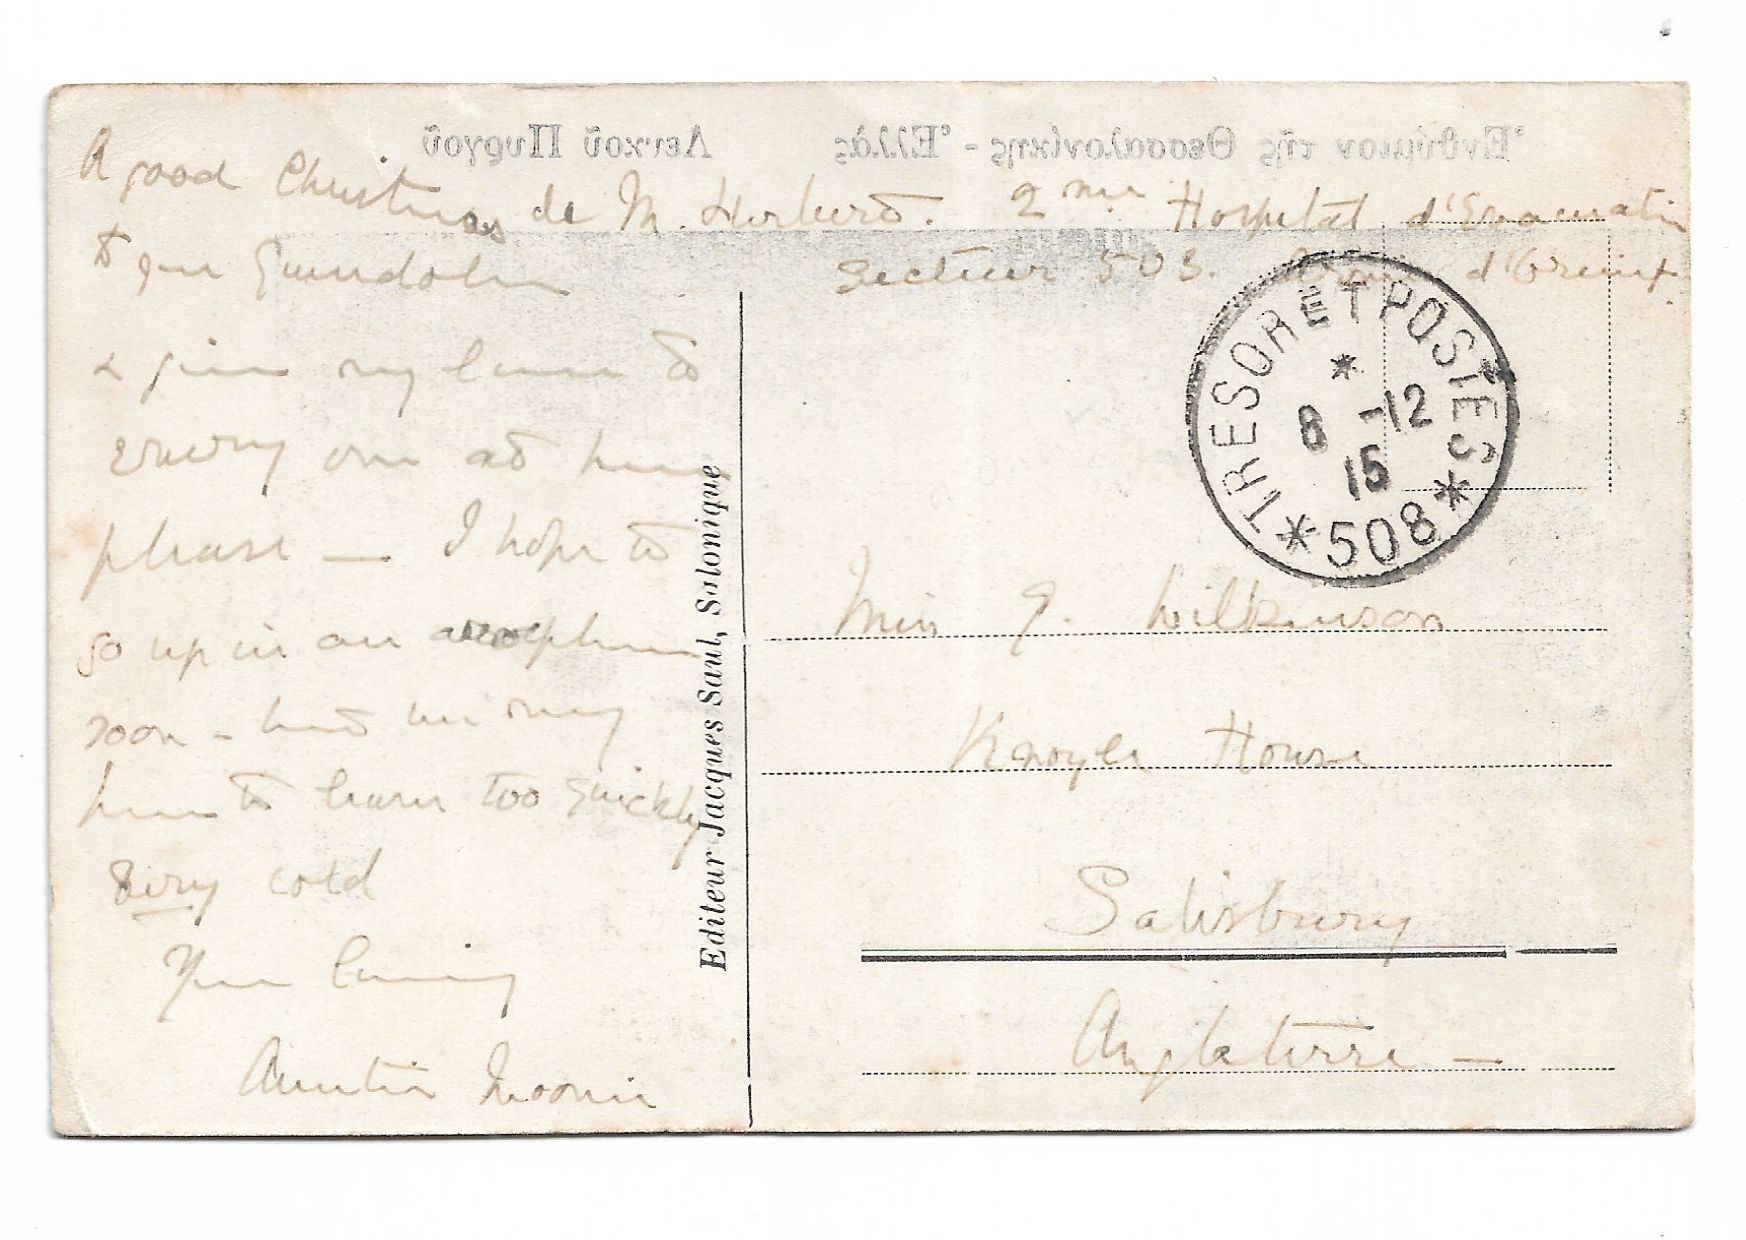 Ἐνθύμιον τῆς Θεσσαλονίκης - Ἑλλὰς Λευκοῦ Πυργοῦ
A good Christmas
to you Guendolen
& give my love to
every one at home
please — I hope to
go up in an aeroplane
soon - but we may
have to leave too quickly
very cold
Your loving
Auntie
de M. Herbert. 2me Hospital d'Evacuation
Secteur 503. Armée d'Orient.
TRESOR ET POSTES
*
8 -12
15
* 508 *
Editeur Jacques Saul, Salonique
Miss G. Wilkinson
Knoyle House
Salisbury
Angleterre —